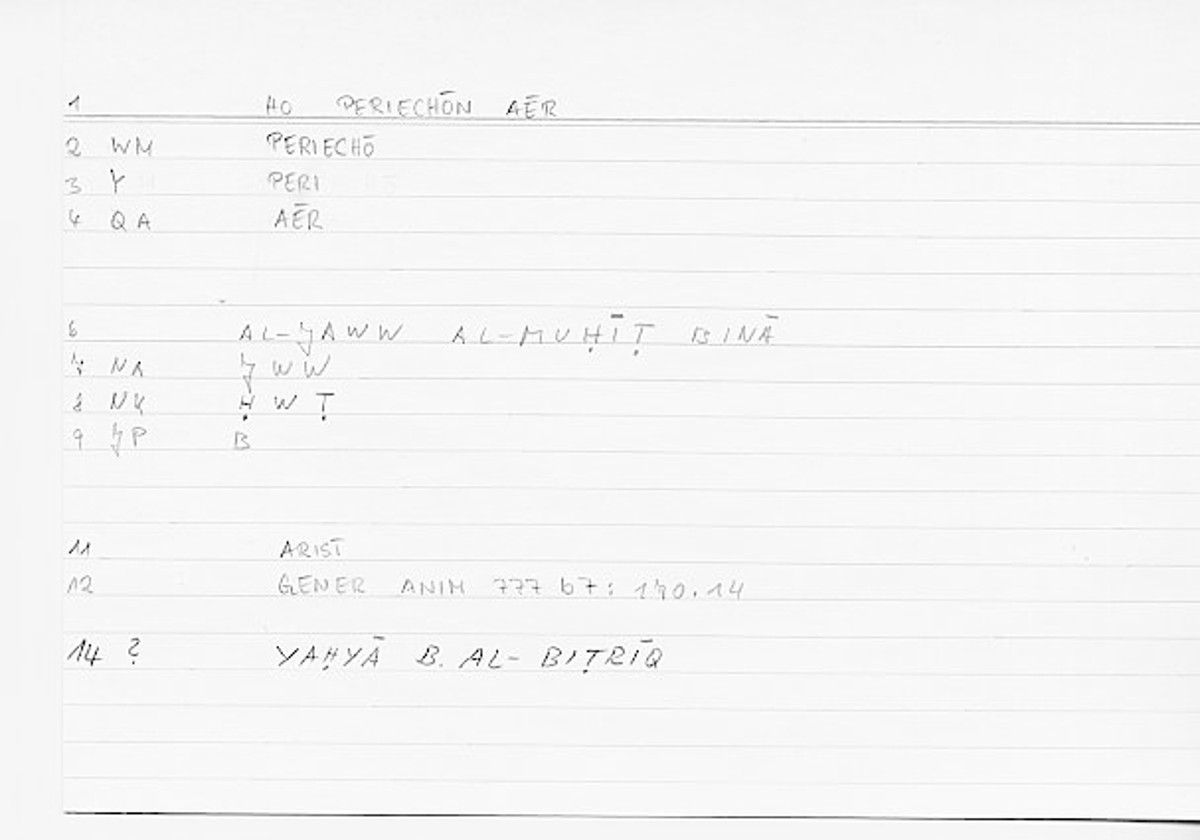 1 HO PERIECHŌN AĒR
2 WM PERIECHŌ
3 Y PERI
4 QA AĒR
6 AL-ǦAWW AL-MUḤĪṬ BINĀ
7 NA ǦWW
8 NK ḤWṬ
9 ǦP B
11 ARIST
12 GENER ANIM 777 b7: 170.14
14 ? YAḤYĀ B. AL-BIṬRĪQ